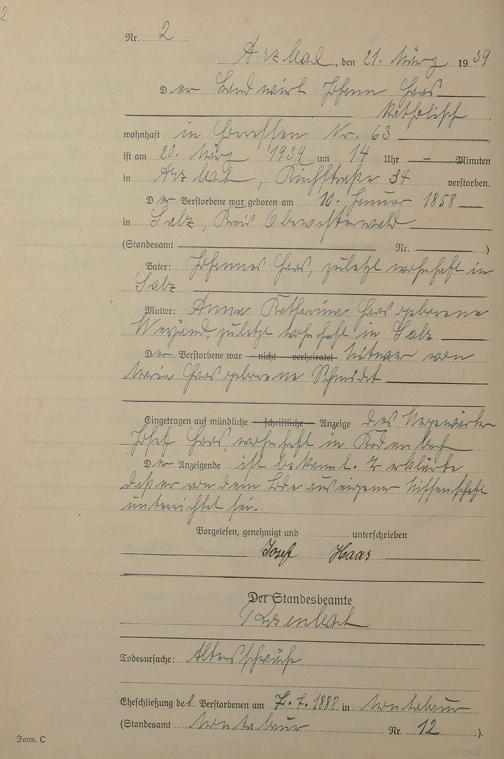 2
Nr. 2
Arzbach, den 21. März 1939
Der Landwirt Johann Haas
katholisch
wohnhaft in Horressen Nr. 63
ist am 20. März 1939 um 14 Uhr — Minuten
in Arzbach, Kirchstraße 34 verstorben.
Der Verstorbene war geboren am 10. Januar 1858
in Salz, Kreis Oberwesterwald
(Standesamt Nr. )
Vater: Johannes Haas, zuletzt wohnhaft in
Salz
Mutter: Anna Katharina Haas geborene
zuletzt wohnhaft in Salz
Der Verstorbene war nicht verheiratet Witwer von
Maria Haas geborene Schmidt
Eingetragen auf mündliche schriftliche Anzeige des Wegewärter
Josef Haas, wohnhaft in
Der Anzeigende ist bekannt. Er erklärte,
daß er von dem Tode aus eigener Wissenschaft
unterrichtet sei.
Vorgelesen, genehmigt und unterschrieben
Josef Haas
Der Standesbeamte
Todesursache: Altersschwäche
Eheschließung des Verstorbenen am 7.7.1888 in Montabaur
(Standesamt Montabaur Nr. 12 ).
Form. C